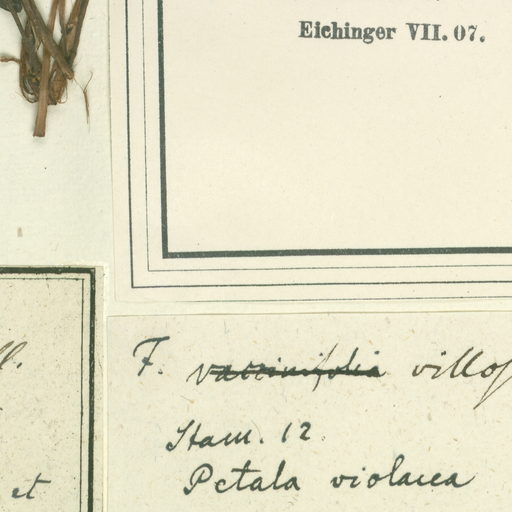 Eichinger VII. 07.
F. vaccinifolia villos
Stam. 12
Petala violacea
et